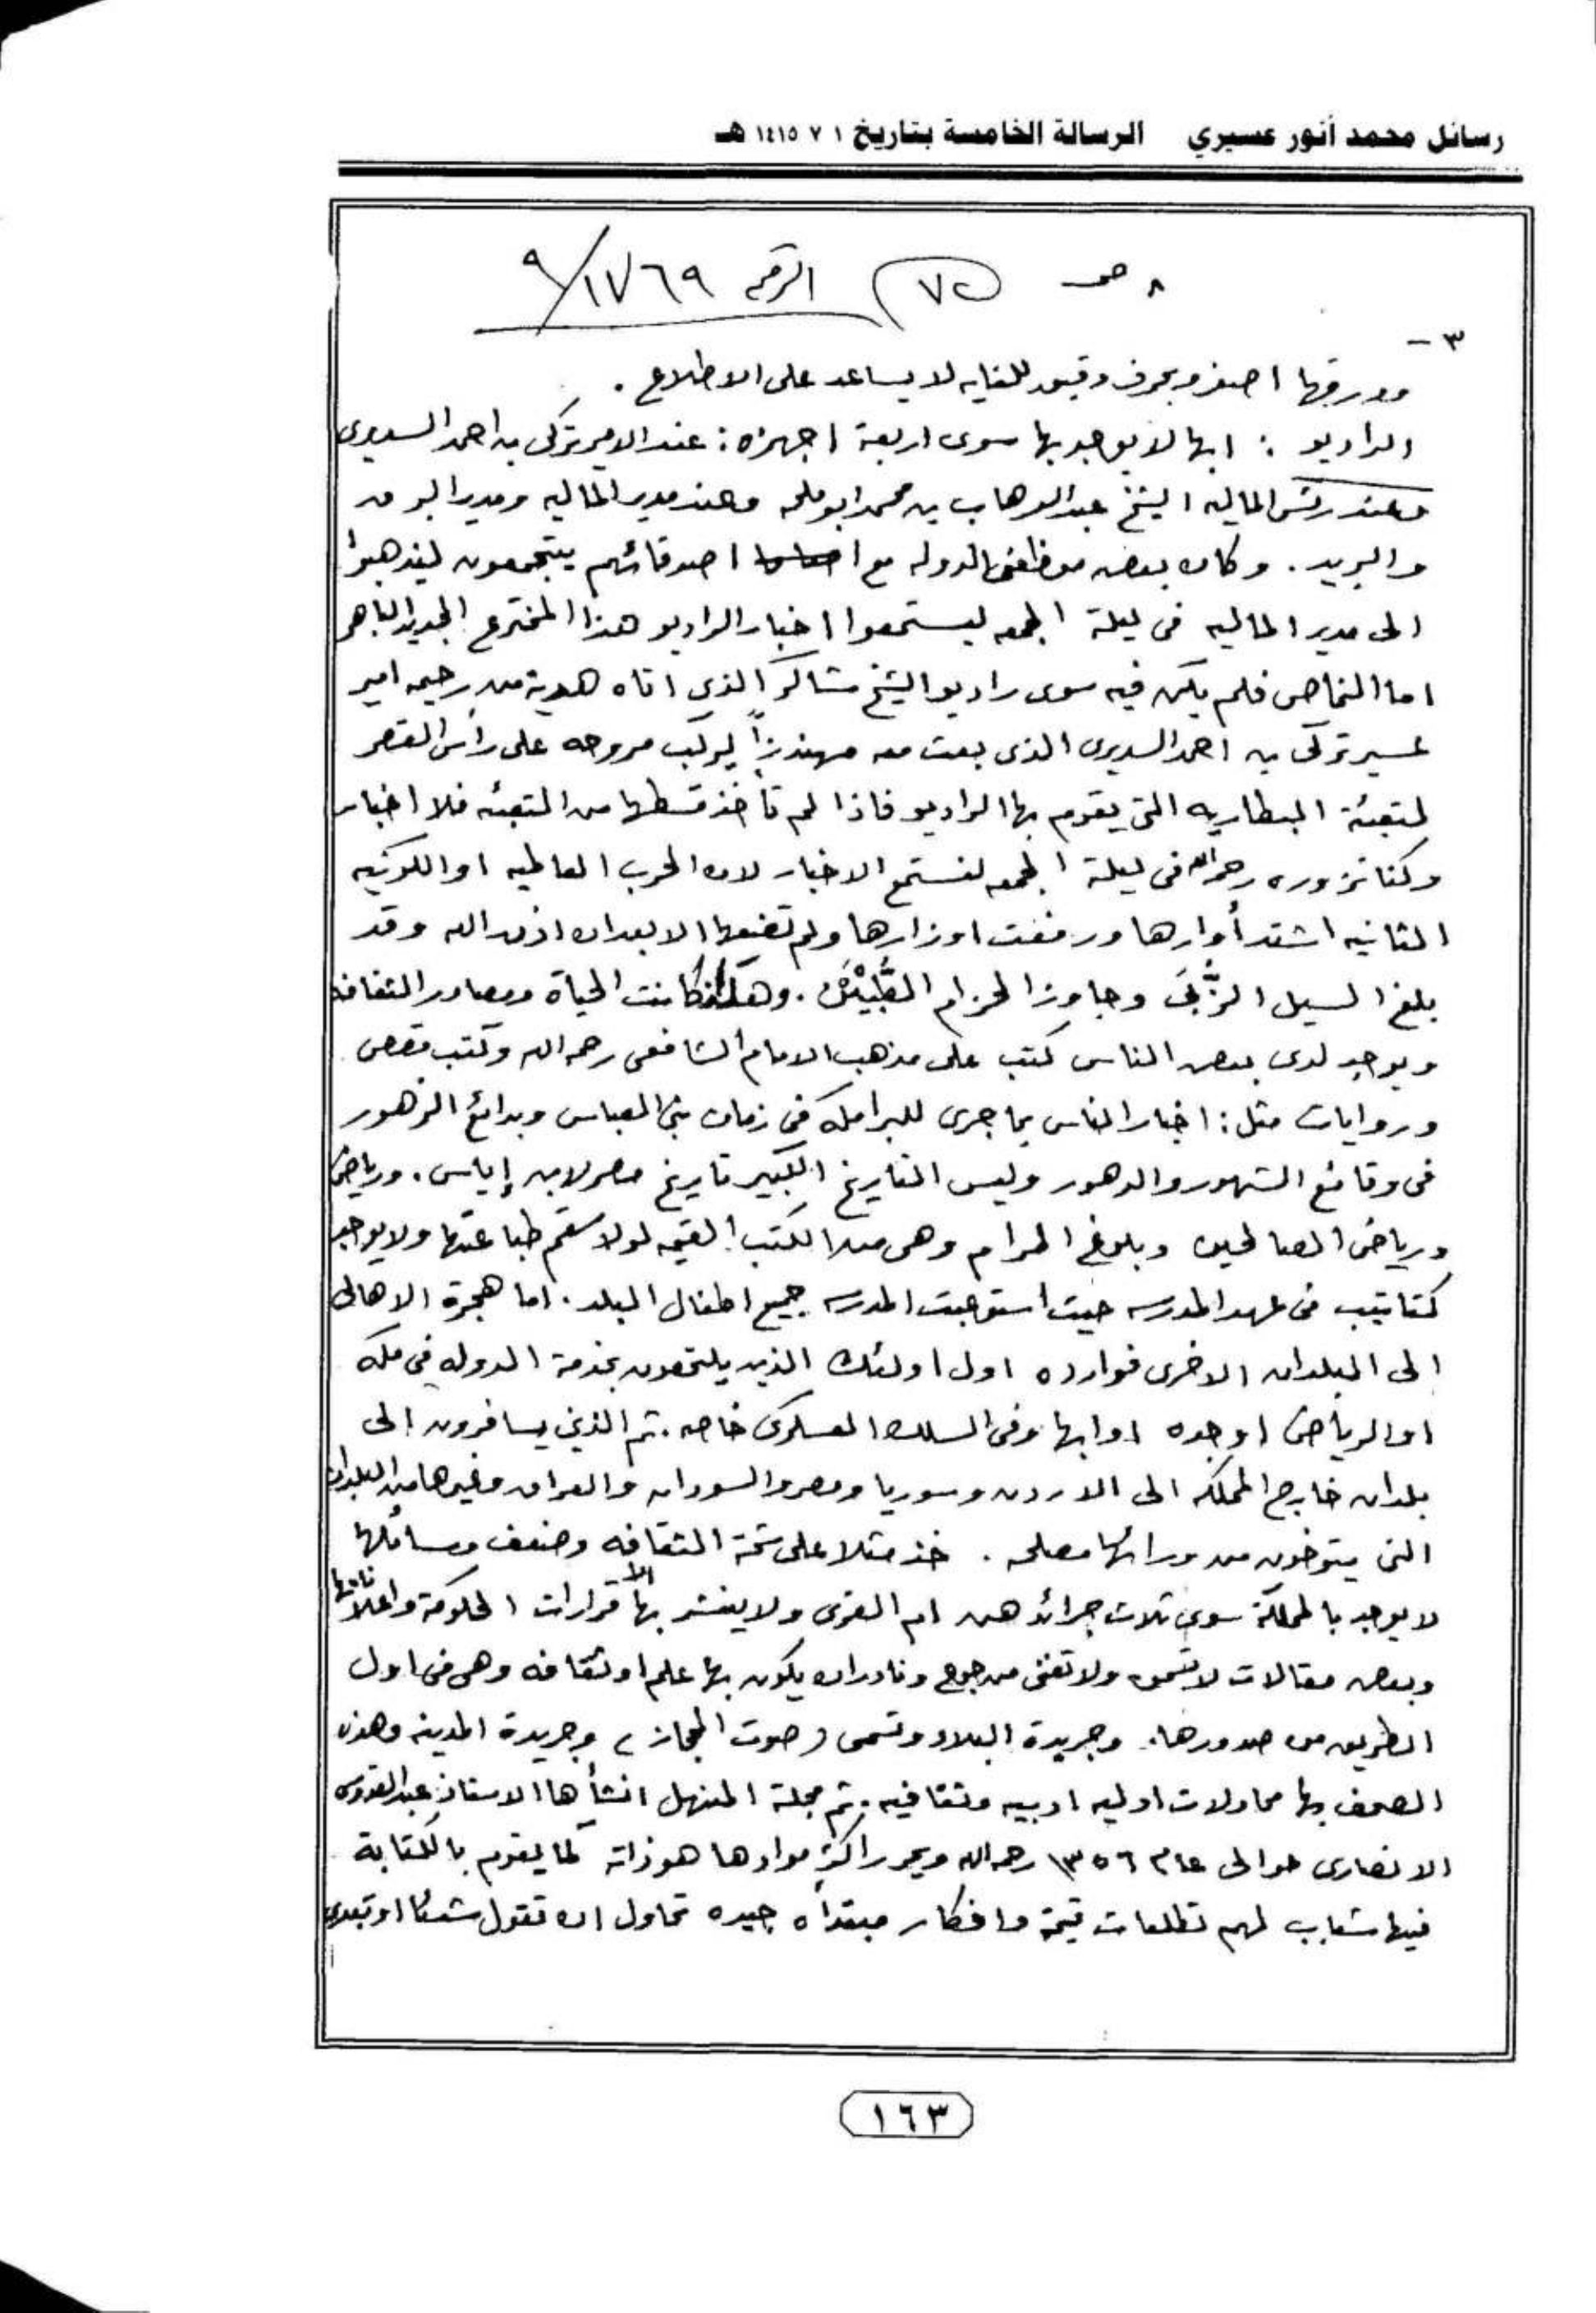 رسائل محمد أنور عسيري الرسالة الخامسة بتاريخ ١ ٧ ١٤١٥ هـ
الرقم ١٧٦٩/٩
٣-
وورقها اصفر وبحرف دقيق للغايه لا يساعد على الاطلاع .
الراديو : ابها لا يوجد بها سوى اربعة اجهزه : عند الامير تركى بن احمد السديرى
وعند رئس الماليه الشيخ عبد الوهاب بن محمد ابو ملحه وعند مدير الماليه ومدير البرق
والبريد . وكان بعض موظفى الدوله مع اصدقائهم يتجمعون ليذهبوا
الى مدير الماليه فى ليلة الجمعه ليستمعوا اخبار الراديو هذا المخترع الجديد الباهر
اما النماص فلم يكن فيه سوى راديو الشيخ شاكراً الذي اتاه هدية من رحيمه امير
عسير تركى بن احمد السديرى الذى بعث معه مهندزاً ليركب مروحه على رأس القصر
لتعبئة البطاريه التى يقوم بها الراديو فاذا لم تأخذ قسطها من التعبئه فلا اخبار
وكنا نزوره رحمه الله فى ليلة الجمعه لنستمع الاخبار لان الحرب العالميه او الكونيه
الثانيه اشتد أوارها ورفعت اوزارها ولم تضعها الا بعد ان اذن الله وقد
بلغ السيل الزُّبَى وجاوز الحزام الطُّبْيَيْن . وهكذا كانت الحياة ومصادر الثقافه
ويوجد لدى بعض الناس كتب على مذهب الامام الشافعى رحمه الله وكتب قصص
وروايات مثل : اخبار الناس بما جرى للبرامكه فى زمان بنى العباس وبدائع الزهور
فى وقائع الشهور والدهور وليس التاريخ الكبير تاريخ مصر لابن إياس . ورياض
ورياض الصالحين وبلوغ المرام وهى من الكتب القيمه لولا سقم طباعتها ولا يوجد
كتاتيب فى عهد المدرسه حيث استوعبت المدرسه جميع اطفال البلد . اما هجرة الاهالى
الى البلدان الاخرى فوارده اول اولئك الذين يلتحقون بخدمة الدوله فى مكه
او الرياض او جده او ابها وفى السلك العسكرى خاصه . ثم الذين يسافرون الى
بلدان خارج المملكه الى الاردن وسوريا ومصر والسودان والعراق وغيرها من البلدان
التى يتوخون من ورائها مصلحه . خذ مثلا على شحة الثقافه وضعف وسائلها
لا يوجد بالمملكة سوى ثلاث جرائد هى ام القرى ولا ينشر بها الا قرارات الحكومة واعلاناتها
وبعض مقالات لا تسمن ولا تغنى من جوع ونادر ان يكون بها علم او ثقافه وهى فى اول
الطريق من صدورها . وجريدة البلاد وتسمى ( صوت الحجاز ) وجريدة المدينه وهذه
الصحف بها محاولات اوليه ادبيه وثقافيه . ثم مجلة المنهل انشأها الاستاذ عبد القدوس
الانصارى حوالى عام ١٣٥٦ رحمه الله ويحرر اكثر موادها هو ذاته كما يقوم بالكتابة
فيها شباب لهم تطلعات قيمة وافكار مبتدأه جيده تحاول ان تقول شيئا او تبدى
١٦٣